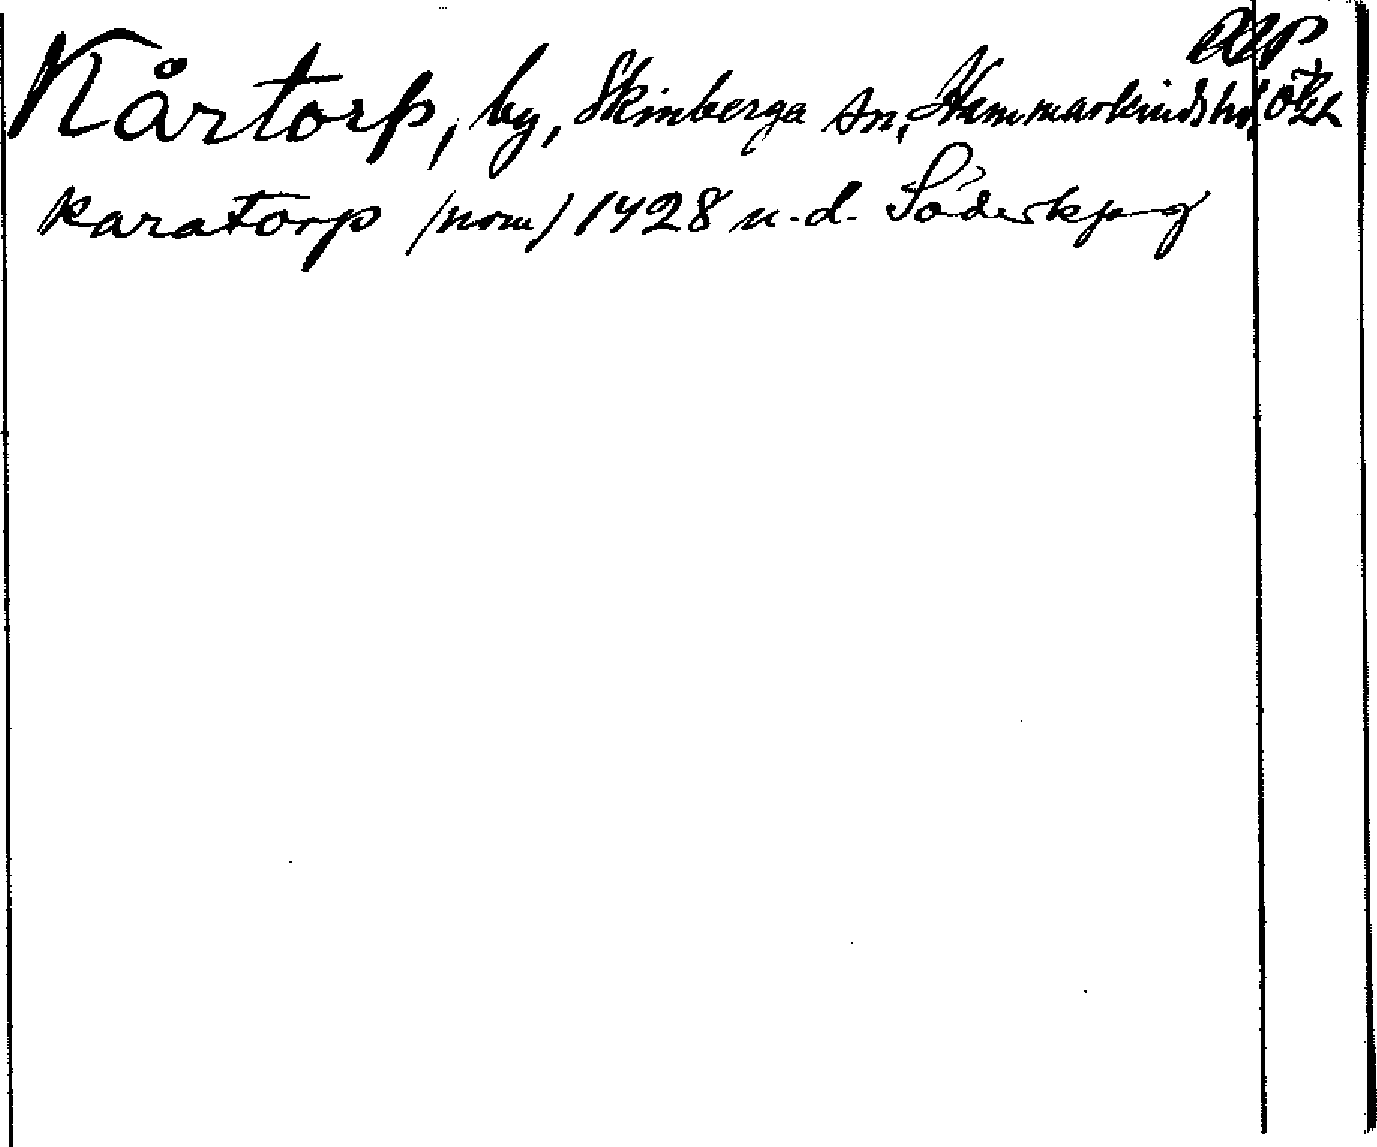 Kårtorp, by, Skönberga sn, Hammarkinds hd, Ög
karatorp /nom/ 1428 u.d. Söderkpg